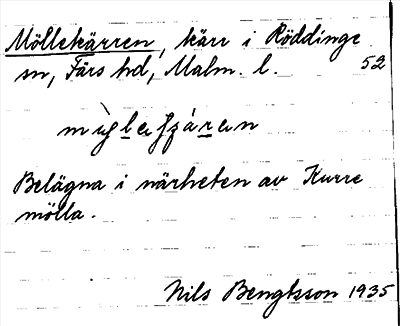 Möllekärren, kärr i Röddinge
sn, Färs hd, Malm. l. 52
Belägna i närheten av Kurre
mölla.
Nils Bengtsson 1935